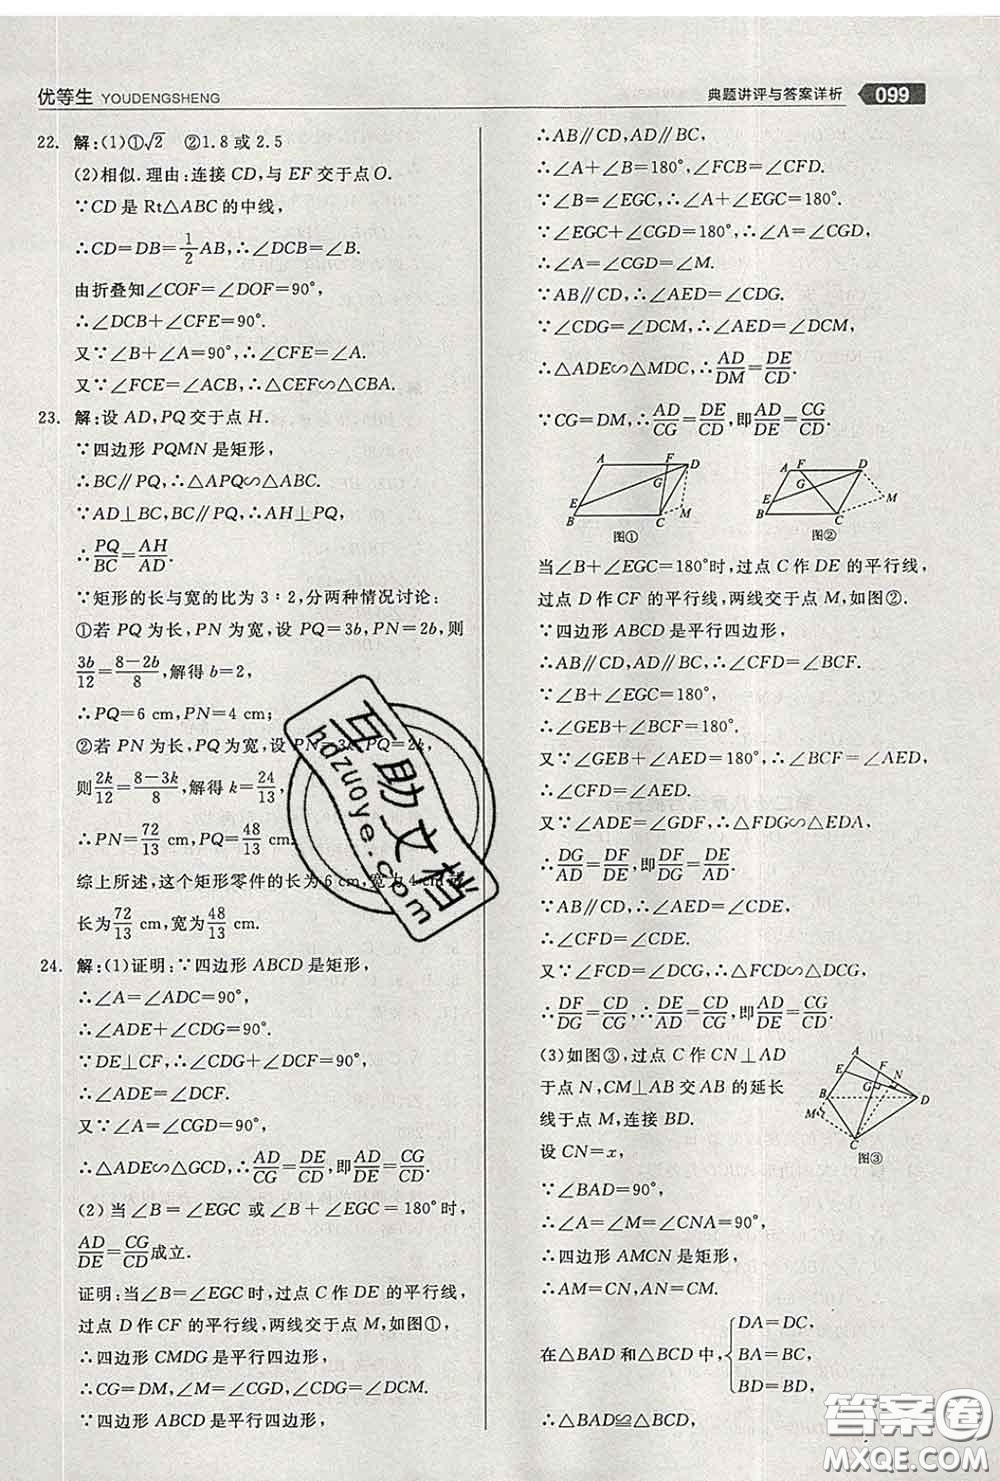 优等生 YOUDENGSHENG
典题讲评与答案详析 099
22. 解:(1)①√2 ②1.8或2.5
(2)相似.理由:连接CD,与EF交于点O.
∵CD是Rt△ABC的中线,
∴CD=DB=1/2AB,∴∠DCB=∠B.
由折叠知∠COF=∠DOF=90°,
∴∠DCB+∠CFE=90°.
又∵∠B+∠A=90°,∴∠CFE=∠A.
又∵∠FCE=∠ACB,∴△CEF∽△CBA.
23. 解:设AD,PQ交于点H.
∵四边形PQMN是矩形,
∴BC∥PQ,∴△APQ∽△ABC.
∵AD⊥BC,BC∥PQ,∴AH⊥PQ,
∴PQ/BC=AH/AD.
∵矩形的长与宽的比为3:2,分两种情况讨论:
①若PQ为长,PN为宽,设PQ=3b,PN=2b,则
3b/12=(8-2b)/8,解得b=2,
∴PQ=6 cm,PN=4 cm;
②若PN为长,PQ为宽,设PN=3k,PQ=2k,
则2k/12=(8-3k)/8,解得k=24/13,
∴PN=72/13 cm,PQ=48/13 cm.
综上所述,这个矩形零件的长为6 cm,宽为4 cm或
长为72/13 cm,宽为48/13 cm.
24. 解:(1)证明:∵四边形ABCD是矩形,
∴∠A=∠ADC=90°,
∴∠ADE+∠CDG=90°.
∵DE⊥CF,∴∠CDG+∠DCF=90°,
∴∠ADE=∠DCF.
又∵∠A=∠CGD=90°,
∴△ADE∽△GCD,∴AD/CG=DE/CD,即AD/DE=CG/CD.
(2)当∠B=∠EGC或∠B+∠EGC=180°时,
AD/DE=CG/CD成立.
证明:当∠B=∠EGC时,过点C作DE的平行线,
过点D作CF的平行线,两线交于点M,如图①,
∴四边形CMDG是平行四边形,
∴CG=DM,∠M=∠CGD,∠CDG=∠DCM.
∵四边形ABCD是平行四边形,
∴AB∥CD,AD∥BC,
∴∠A+∠B=180°,∠FCB=∠CFD.
∵∠B=∠EGC,∴∠A+∠EGC=180°.
∵∠EGC+∠CGD=180°,∴∠A=∠CGD,
∴∠CGD=∠M.
∵AB∥CD,∴∠AED=∠CDG.
∵∠CDG=∠DCM,∴∠AED=∠DCM,
∴△ADE∽△DMC,∴AD/DM=DE/CD.
∵CG=DM,∴AD/CG=DE/CD,即AD/DE=CG/CD.
A F D G E B C M 图①
A F D G E B C M 图②
当∠B+∠EGC=180°时,过点C作DE的平行线,
过点D作CF的平行线,两线交于点M,如图②.
∵四边形ABCD是平行四边形,
∴AB∥CD,AD∥BC,∴∠CFD=∠BCF.
∵∠B+∠EGC=180°,
∴∠GEB+∠BCF=180°.
又∵∠GEB+∠AED=180°,∴∠BCF=∠AED,
∴∠CFD=∠AED.
又∵∠ADE=∠GDF,∴△FDG∽△EDA,
∴DG/DA=DF/DE,即DF/DG=DE/DA.
∵AB∥CD,∴∠AED=∠CDE,
∴∠CFD=∠CDE.
又∵∠FCD=∠DCG,∴△FCD∽△DCG,
∴DF/DG=CD/CG,∴DE/DA=CD/CG,即AD/DE=CG/CD.
(3)如图③,过点C作CN⊥AD
于点N,CM⊥AB交AB的延长
线于点M,连接BD.
设CN=x,
A E F N G B D M C 图③
∵∠BAD=90°,
∴∠A=∠M=∠CNA=90°,
∴四边形AMCN是矩形,
∴AM=CN,AN=CM.
在△BAD和△BCD中,{DA=DC,
BA=BC,
BD=BD,
∴△BAD≌△BCD,
互助文档
hdzuoye.com
答案圈
MXQE.COM